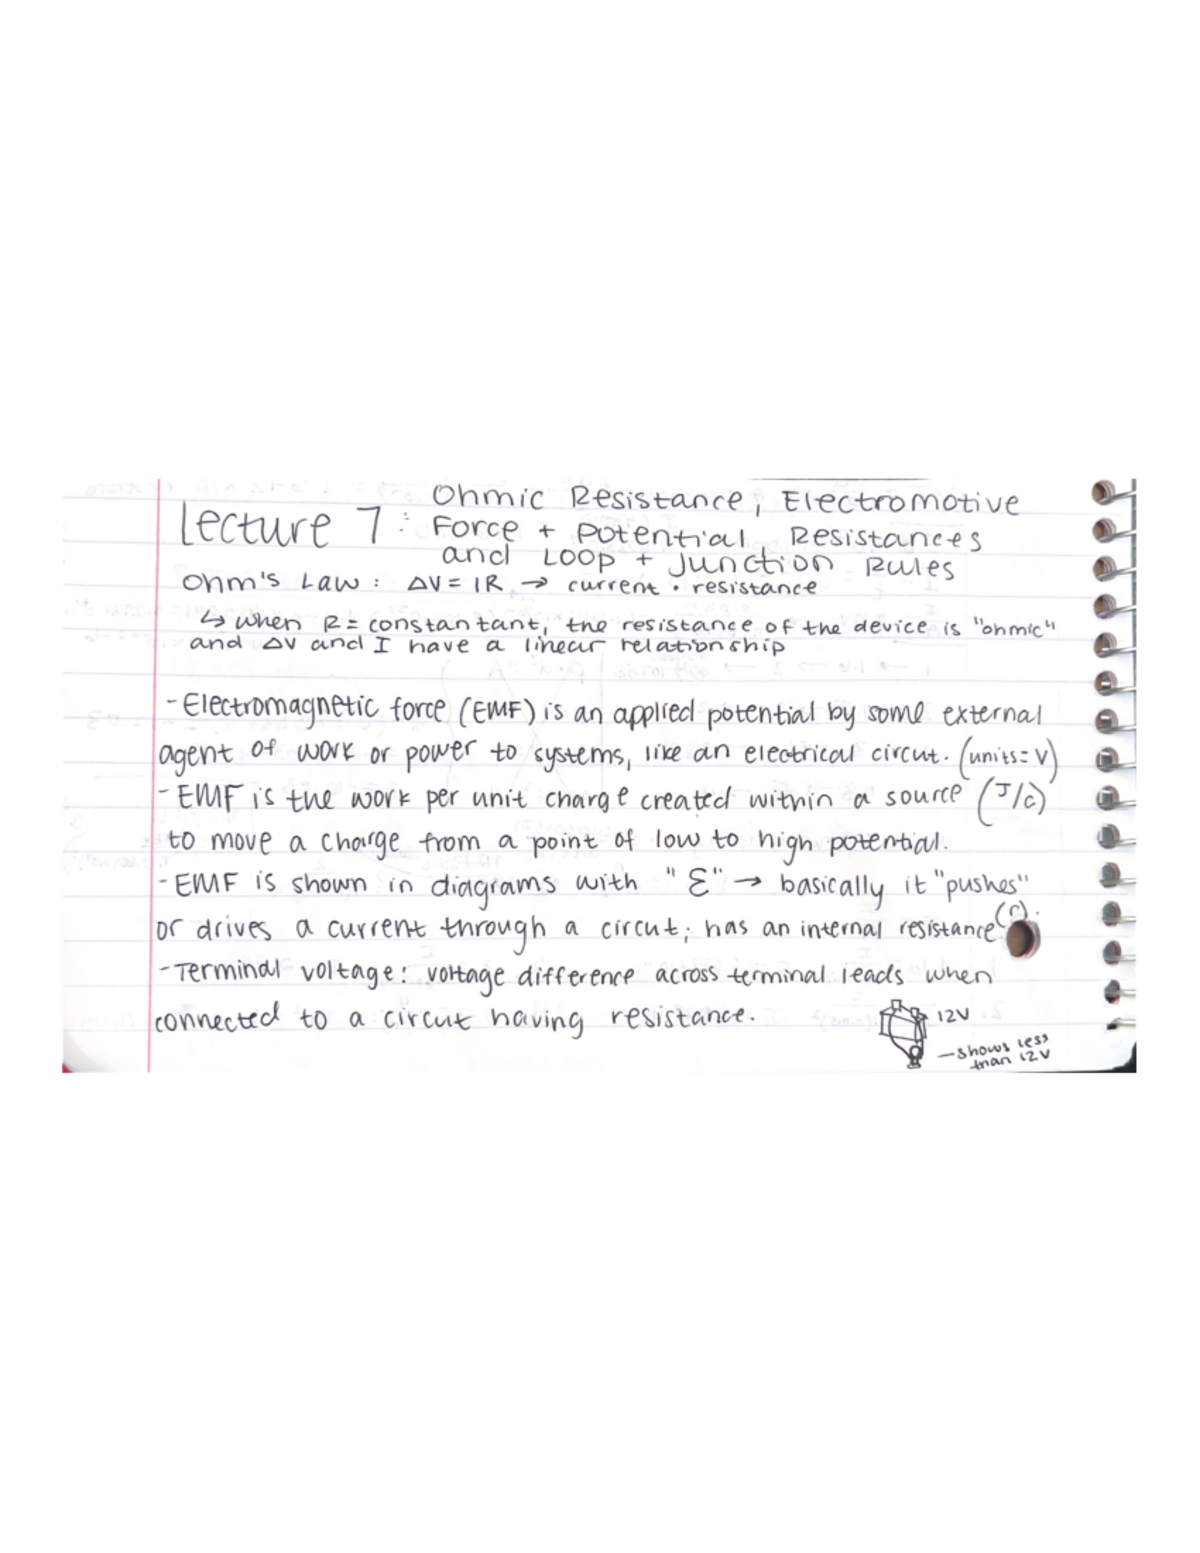 Lecture 7: Ohmic Resistance, Electromotive
Force + Potential, Resistances
and Loop + Junction Rules
Ohm's Law: ΔV = IR → current · resistance
↳ when R = constantant, the resistance of the device is "ohmic"
and ΔV and I have a linear relationship
- Electromagnetic force (EMF) is an applied potential by some external
agent of work or power to systems, like an electrical circut. (units = V)
- EMF is the work per unit charge created within a source (J/c)
to move a charge from a point of low to high potential.
- EMF is shown in diagrams with "Ɛ" → basically it "pushes"
or drives a current through a circut; has an internal resistance (r).
- Terminal voltage: voltage difference across terminal leads when
connected to a circut having resistance.
12V
- shows less
than 12V